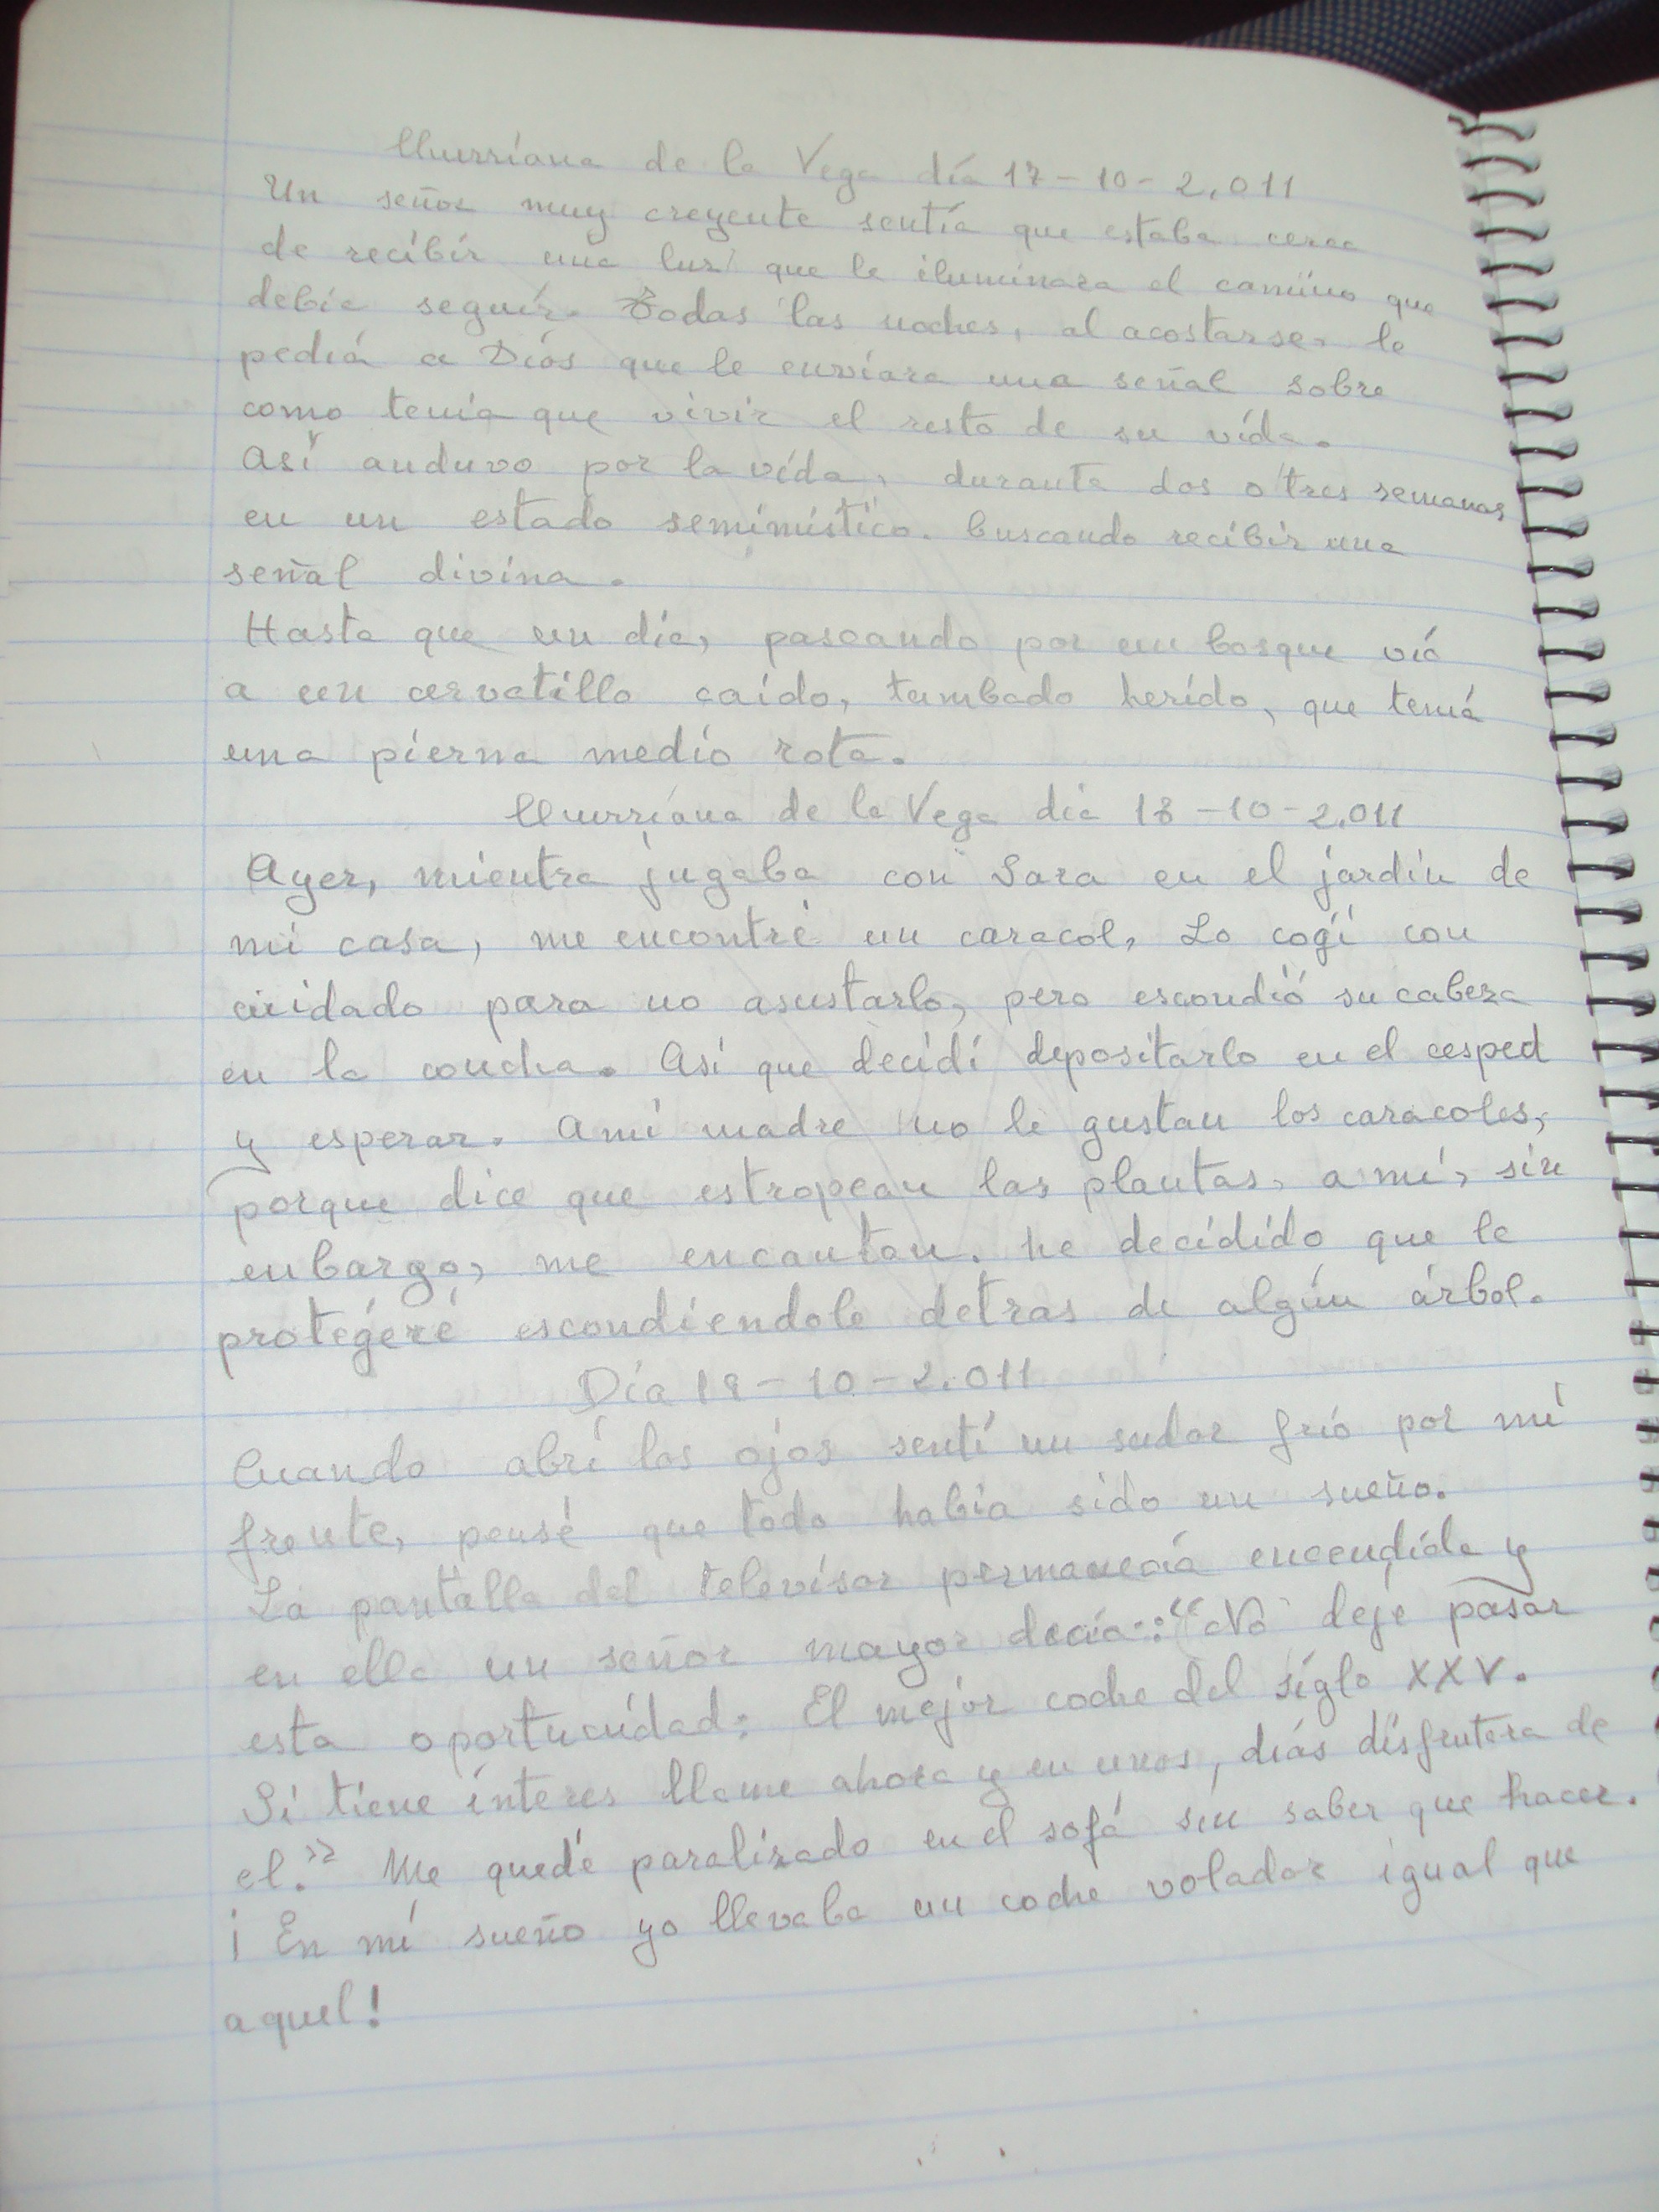 Churriana de la Vega día 17-10-2.011
Un señor muy creyente sentía que estaba cerca
de recibir una luz que le iluminara el camino que
debía seguir. Todas las noches, al acostarse, le
pediá a Diós que le enviara una señal sobre
como tenía que vivir el resto de su vida.
Así anduvo por la vida, durante dos o tres semanas
en un estado semimístico. buscando recibir una
señal divina.
Hasta que un día, paseando por un bosque vió
a un cervatillo caído, tumbado herido, que tenía
una pierna medio rota.
Churriana de la Vega día 18-10-2.011
Ayer, mientra jugaba con Sara en el jardín de
mi casa, me encontré un caracol, Lo cogí con
cuidado para no asustarlo, pero escondió su cabeza
en la concha. Así que decidí depositarlo en el cesped
y esperar. A mi madre no le gustan los caracoles,
porque dice que estropean las plantas, a mí, sin
enbargo, me encantan. he decidido que le
protégeré escondiendole detras de algún árbol.
Día 19-10-2.011
Cuando abrí los ojos sentí un sudor frío por mi
frente, pensé que todo había sido un sueño.
La pantalla del televisor permanecía encendida y
en ella un señor mayor decía: "No deje pasar
esta oportunidad: El mejor coche del siglo XXV.
Si tiene interes llame ahora y en unos, días disfrutera de
el." Me quedé paralizado en el sofá sin saber que hacer.
¡En mi sueño yo llevaba un coche volador igual que
aquel!